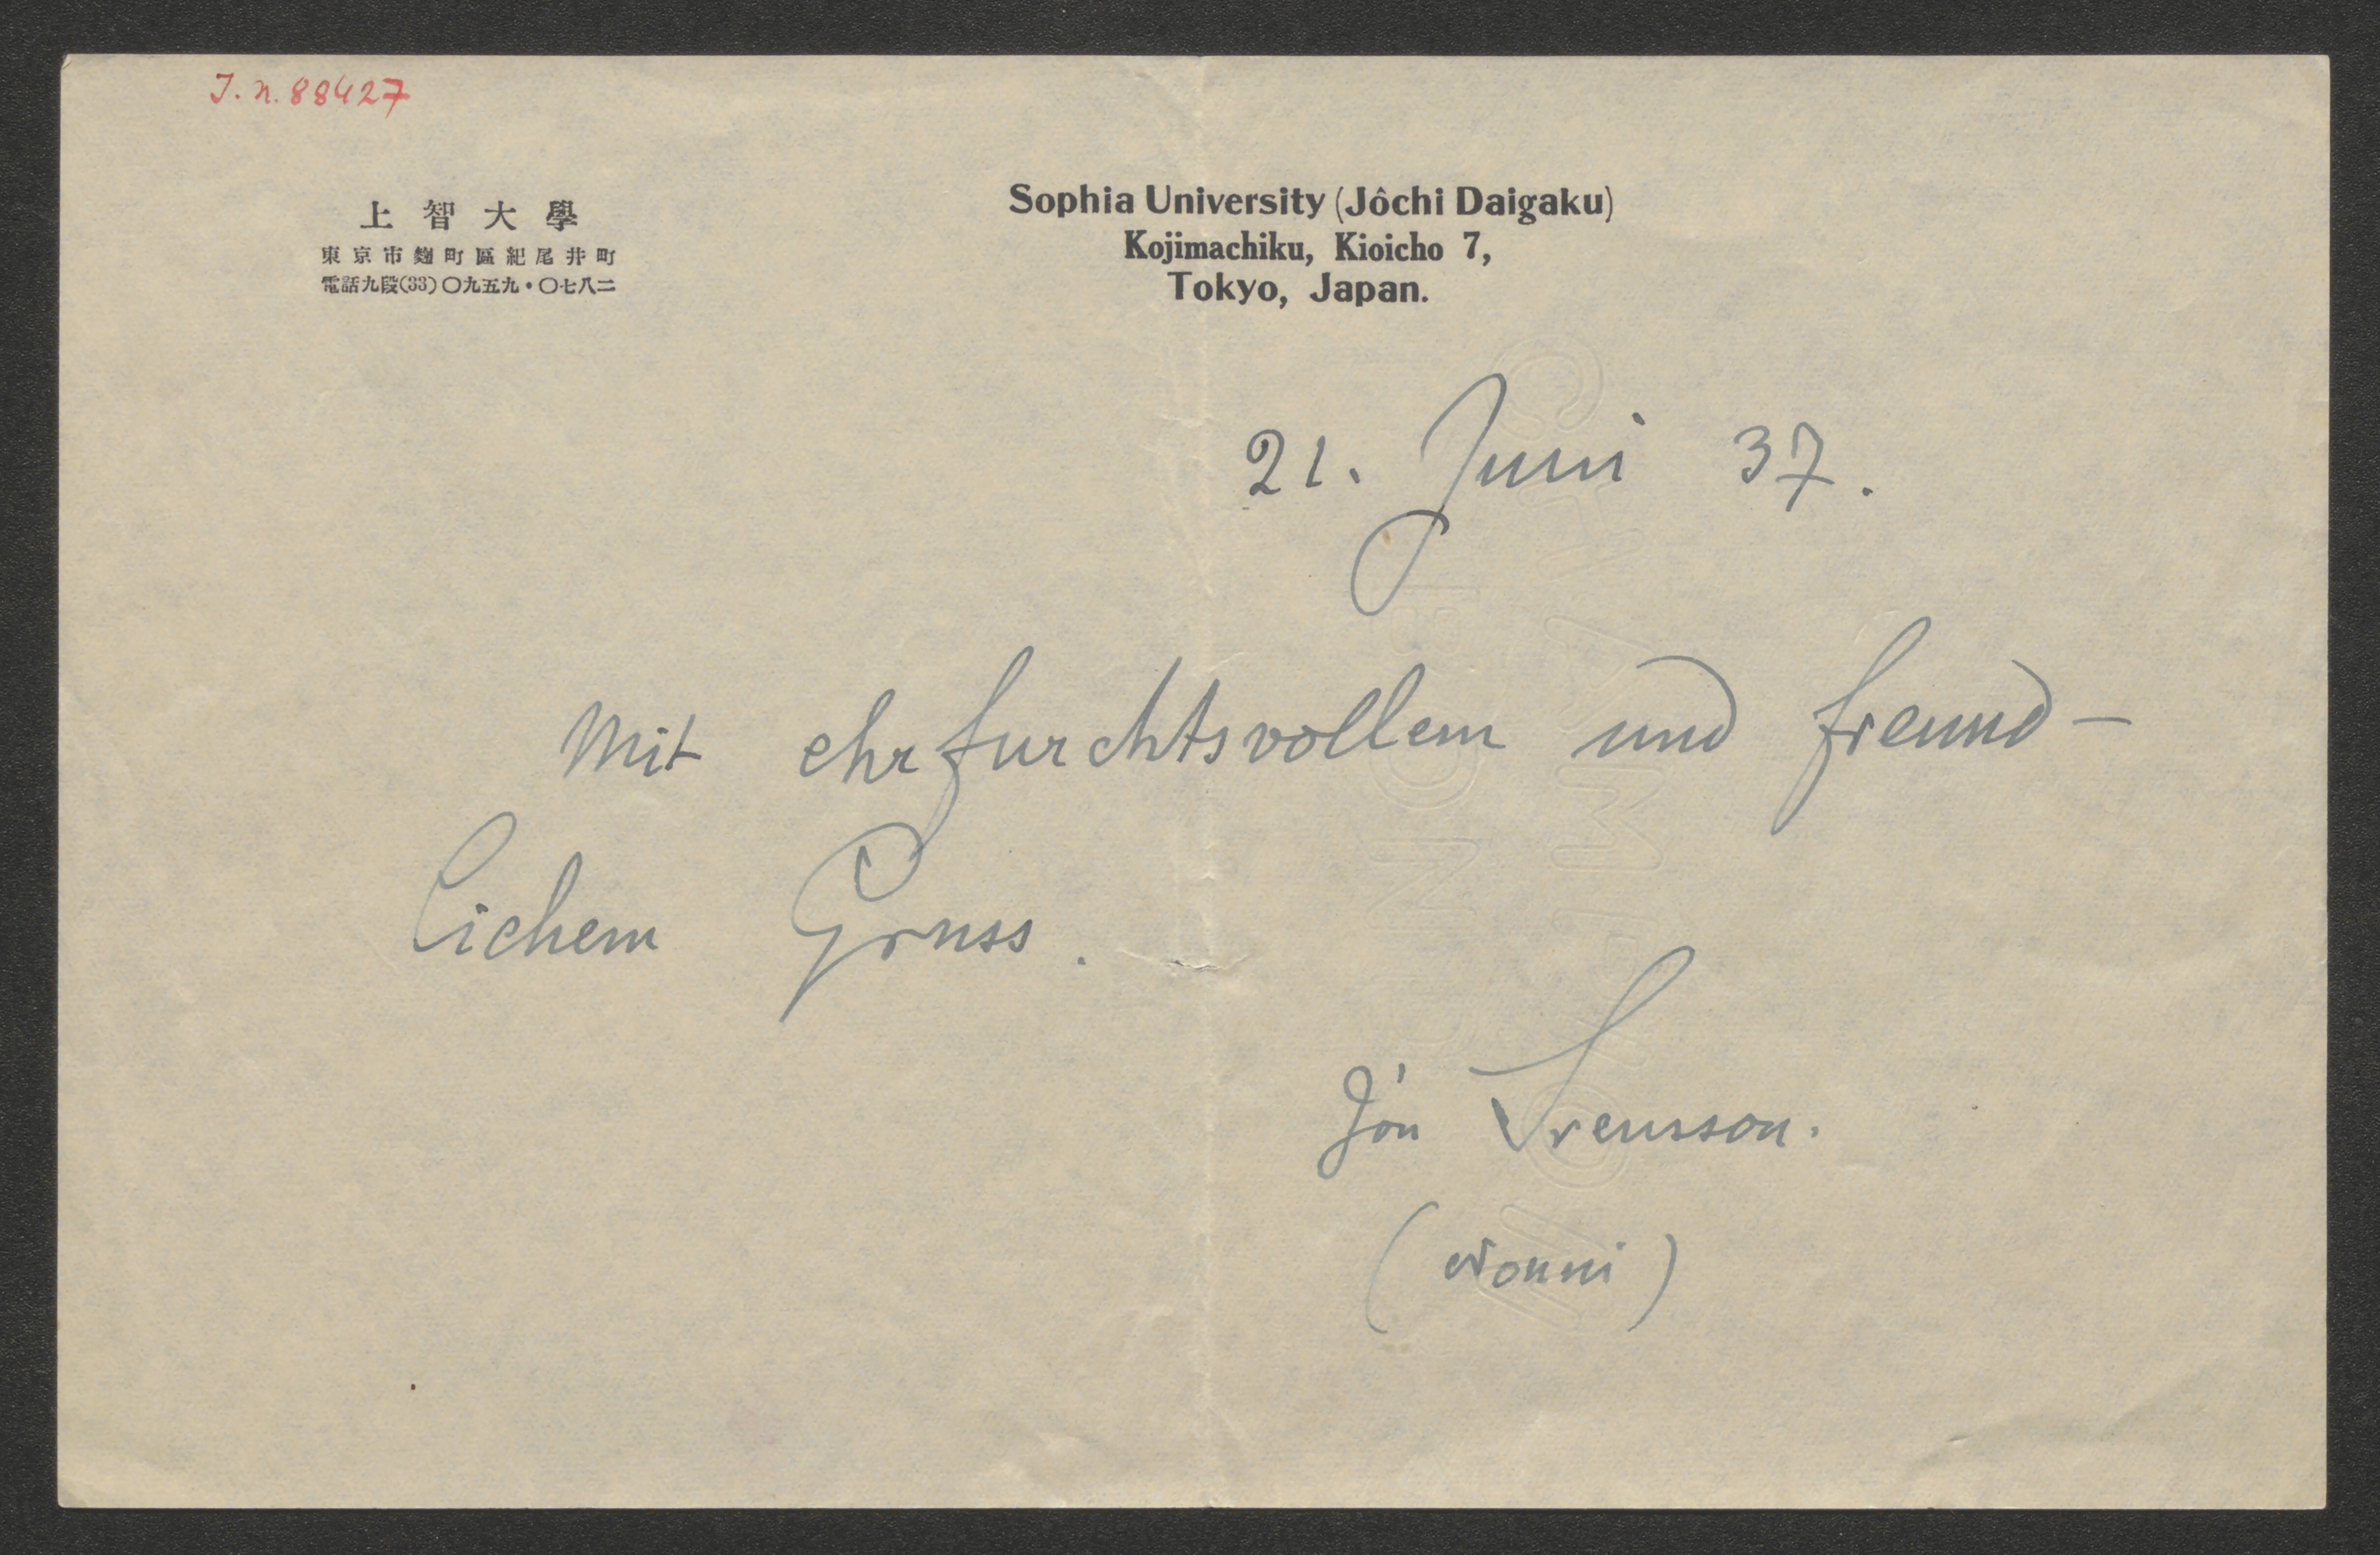 J. N. 88427
上智大學
東京市麴町區紀尾井町
電話九段(33)〇九五九・〇七八二
Sophia University (Jôchi Daigaku)
Kojimachiku, Kioicho 7,
Tokyo, Japan.
21. Juni 37.
Mit ehrfurchtsvollem und freund-
lichem Gruss.
Jón Svensson.
(Nonni)